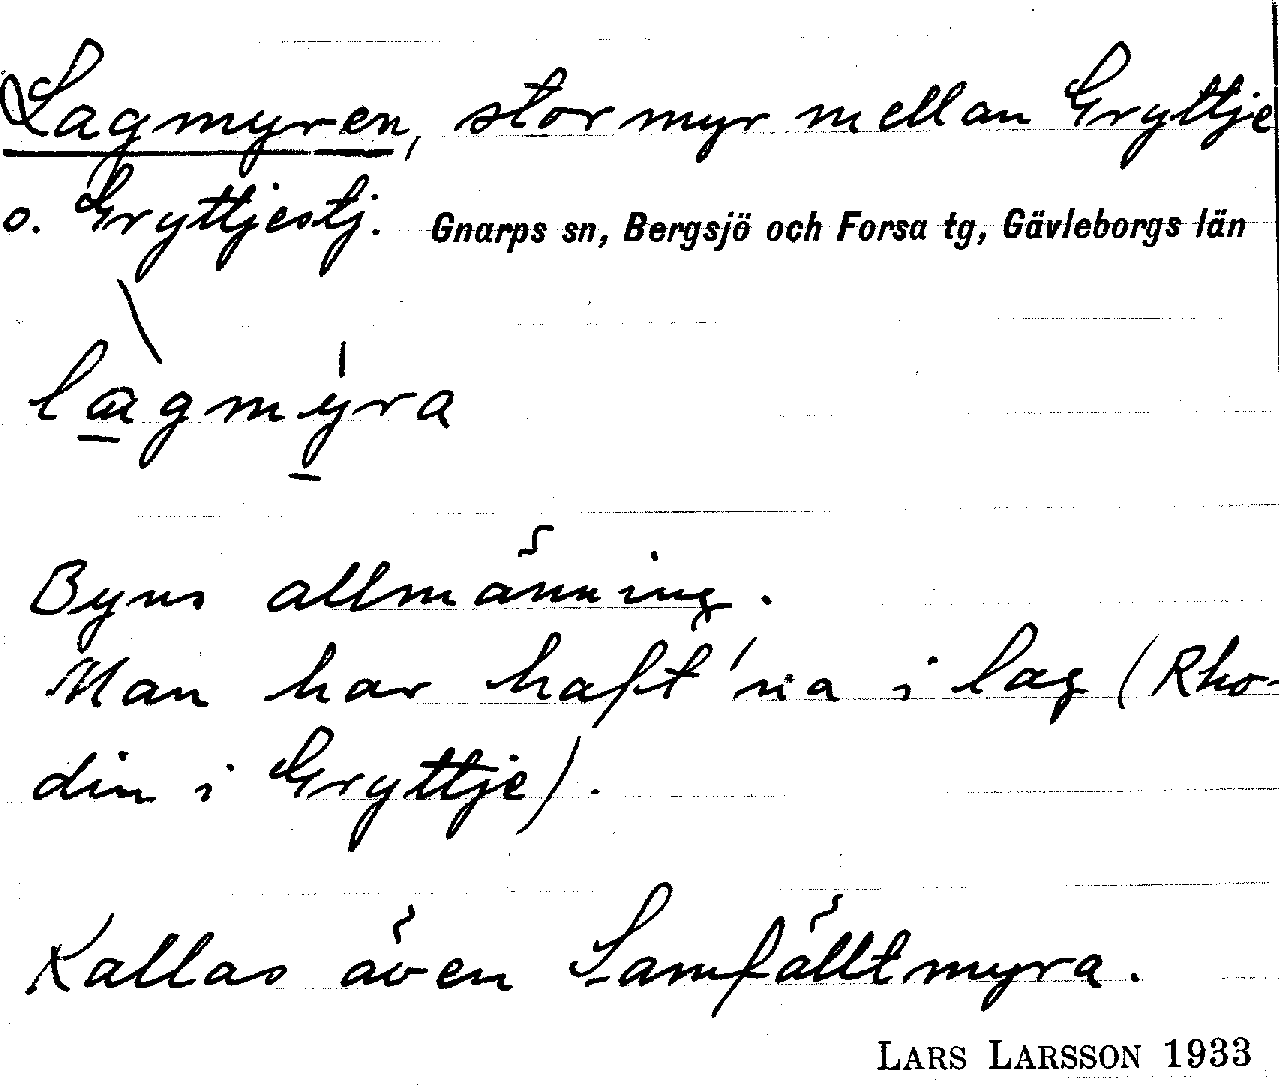 Lagmyren, stor myr mellan Gryttje
o. Gryttjestj. Gnarps sn, Bergsjö och Forsa tg, Gävleborgs län
làgmýra
Byns allmänning.
Man har haft'na i lag (Rho-
din i Gryttje).
Kallas även Samfälltmyra.
LARS LARSSON 1933